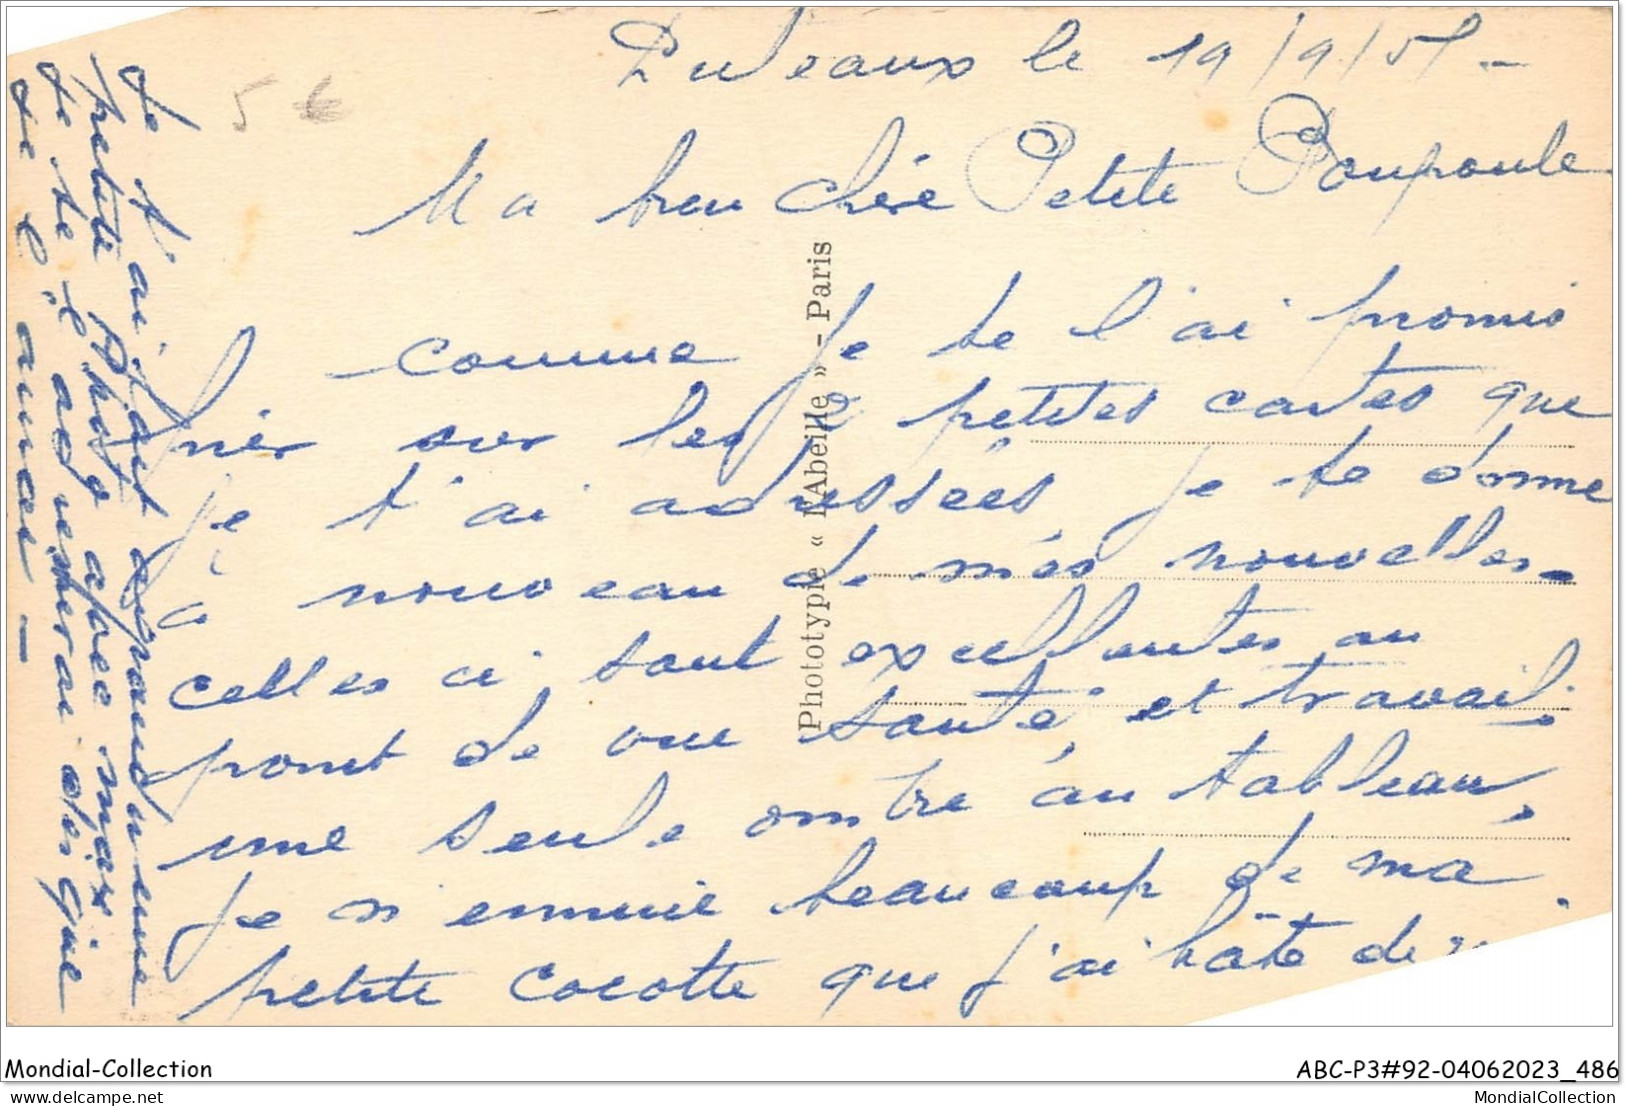 Puteaux le 19/9/51 -
Ma bien chère Petite Poupoule
comme je te l'ai promis
hier sur les 2 petites cartes que
je t'ai adressées je te donne
à nouveau de mes nouvelles -
celles ci sont excellentes au
point de vue santé et travail.
une seule ombre au tableau,
je m'ennuie beaucoup de ma
petite cocotte que j'ai hâte de
Je t'ai, fait
petite Photo avec
Je te le adresserai dès que
Je l'aurai -
Phototypie « L'Abeille » - Paris
5 €
Mondial-Collection
ABC-P3#92-04062023_486
delcampe.net
MondialCollection